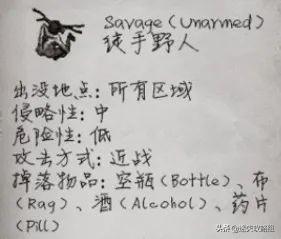 Savage(Unarmed)
徒手野人
出没地点:所有区域
侵略性:中
危险性:低
攻击方式:近战
掉落物品:空瓶(Bottle)、布
(Rag)、酒(Alcohol)、药片
(Pill)